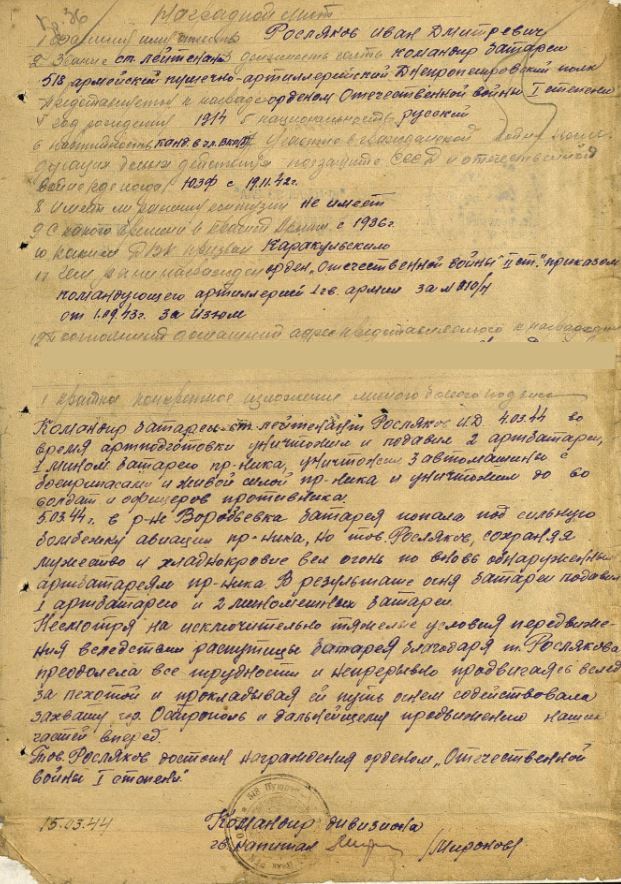 Наградной лист
1 Фамилия имя отчество Росляков Иван Дмитревич
2 Звание ст. лейтенант 3 должность часть командир батареи
518 армейский пушечно-артиллерийский Днепропетровский полк
Представляется к награде орденом Отечественной войны I степени
5 год рождения 1914 6 национальность русский
6 партийность канд. в чл. ВКП/б/ Участие в гражданской войне
дующих боевых действиях по защите СССР и отечественной
войне где когда ЮЗФ с 19.11.42г.
8 имеет ли ранения контузии не имеет
9 с какого времени в Красной Армии с 1936г.
10 каким РВК призван Каракульским
11 Чем ранее награжден орден „Отечественной войны II ст." приказом
командующего артиллерией 1 гв. армии за № 010/н
от 1.09.43г. За Изюм
12 постоянный домашний адрес представляемого к награде
1 краткое конкретное изложение личного боевого подвига
Командир батареи ст. лейтенант Росляков И.Д. 4.03.44 во
время артподготовки уничтожил и подавил 2 артбатареи,
1 миномбатарею пр-ника, уничтожил 3 автомашины с
боеприпасами и живой силой пр-ника и уничтожил до 60
солдат и офицеров противника.
5.03.44г. в р-не Воробьевка батарея попала под сильную
бомбежку авиации пр-ника, но тов. Росляков, сохраняя
мужество и хладнокровие вел огонь по вновь обнаруженным
артбатареям пр-ника В результате огня батареи подавил
1 артбатарею и 2 минометных батареи.
Несмотря на исключительно тяжелые условия передвиже-
ния вследствии распутицы батарея благодаря т. Рослякова
преодолела все трудности и непрерывно продвигаясь вслед
за пехотой и прокладывая ей путь огнем содействовала
захвату гор. Острополь и дальнейшему продвижению наших
частей вперед.
Тов. Росляков достоин награждения орденом „Отечественной
войны I степени"
15.03.44 Командир дивизиона
гв. капитан /Миронов/